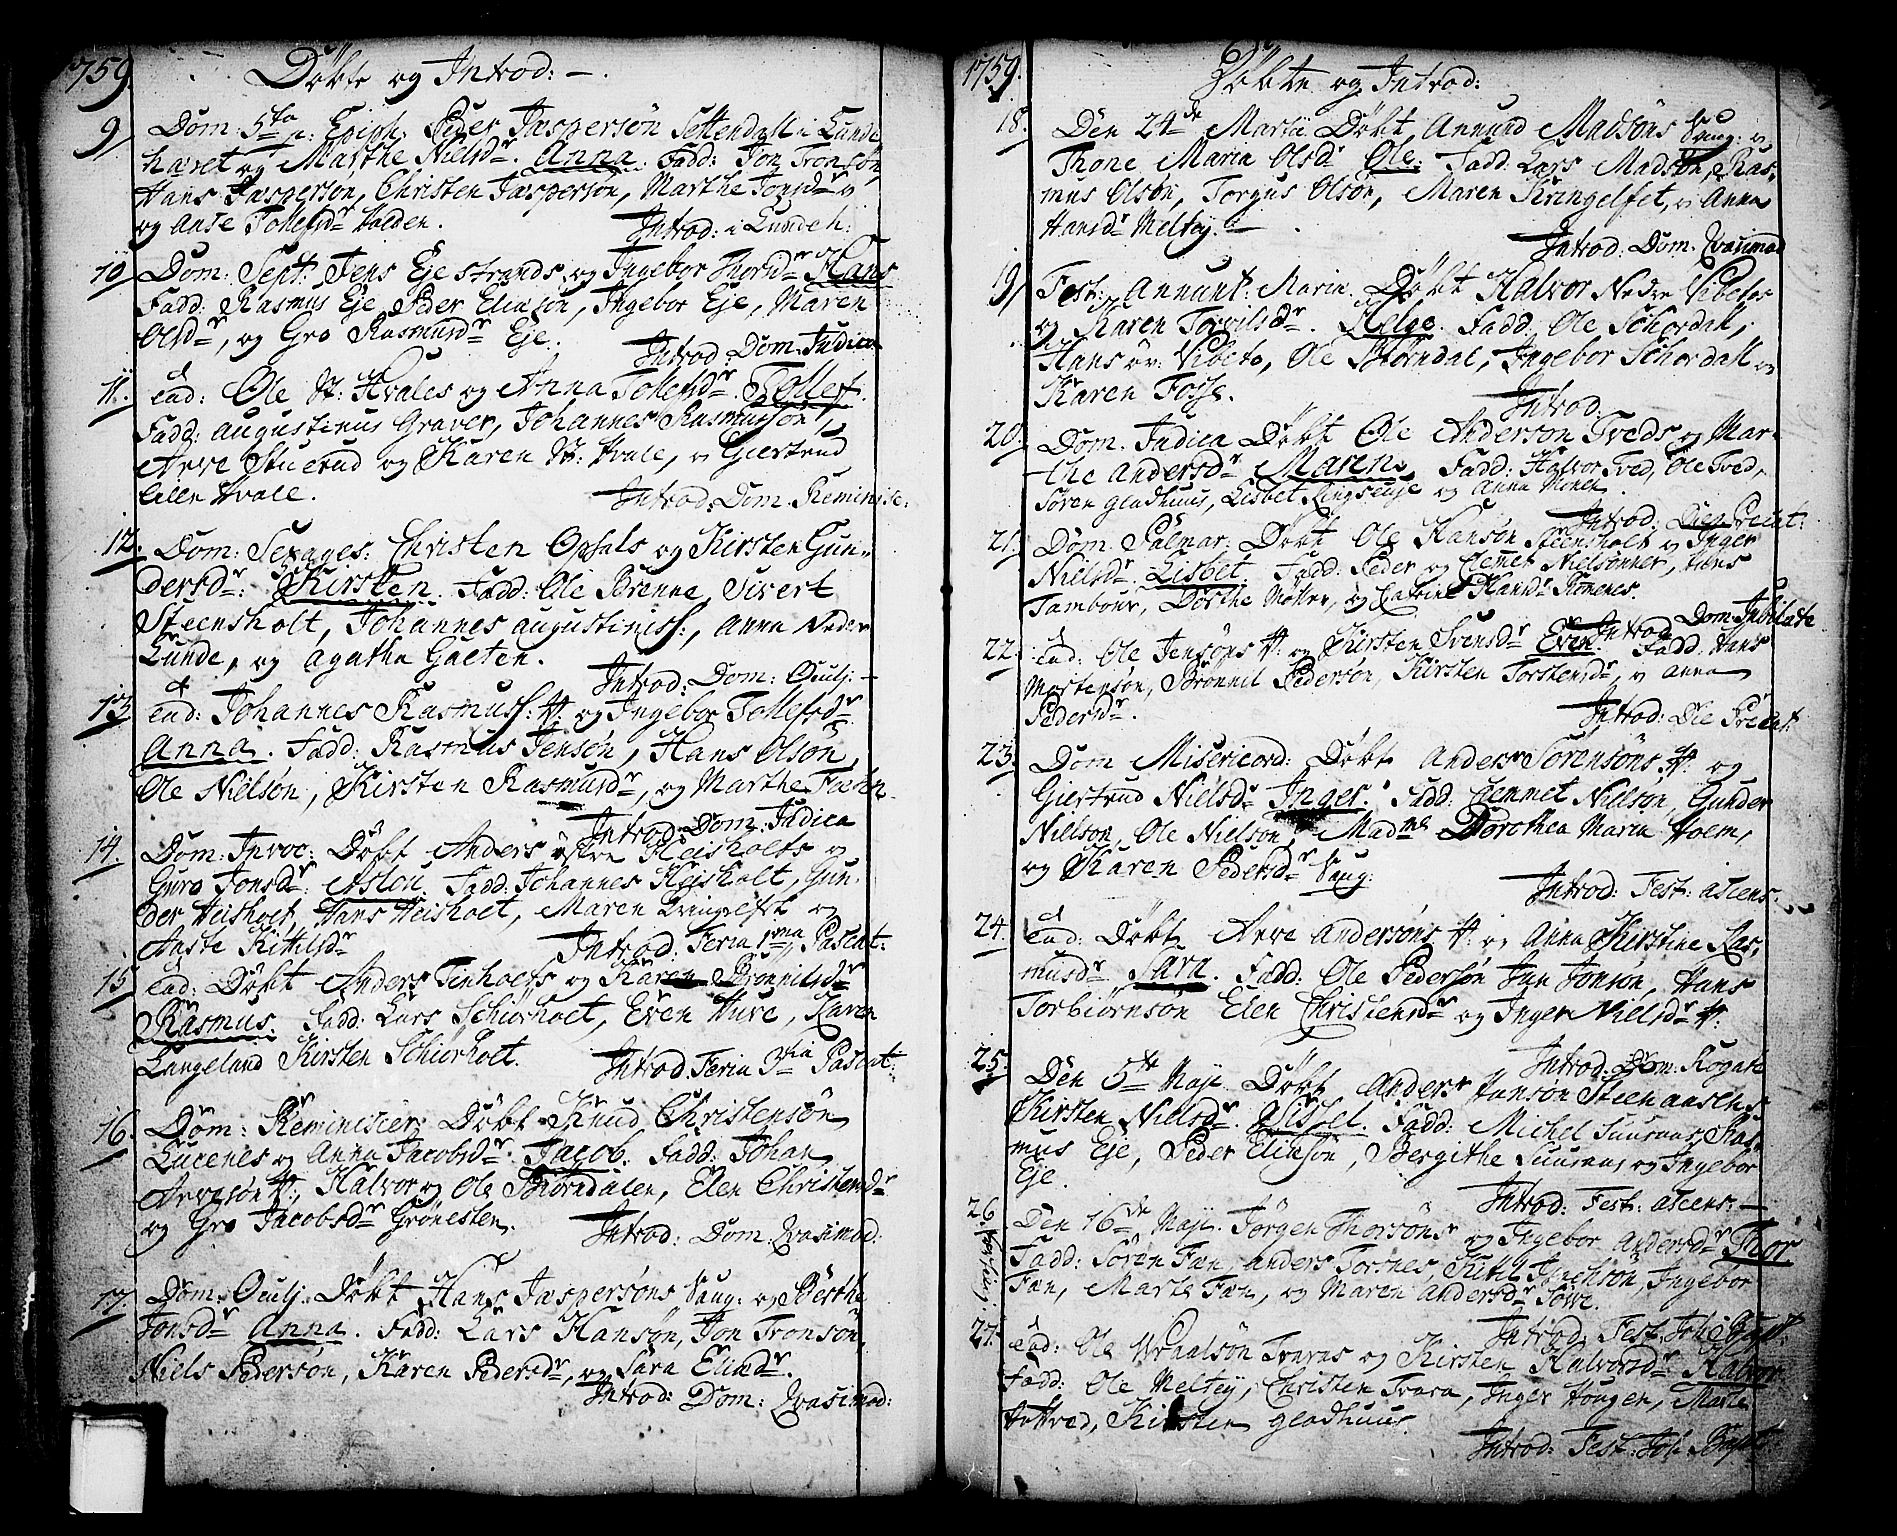 1759.
Döbte og Introd: —.
9 Dom: 5ta p: Epiph: Peder Jaspersön Settendall i Lunde
haret og Marthe Nielsdr. Anna. Fadd: Jon Tronsön,
Hans Jaspersön, Christen Jaspersön, Marthe Jonsdr
og Anse Tollefsdr Holden. Introd: i Lundeh:
10 Dom: Sept: Jens Eje strands og Ingebor Thorsdr Hans
Fadd: Rasmus Eje, Peder Eliasön, Ingebor Eje, Maren
Olsdr, og Gro Rasmusdr Eje. Introd: Dom: Judica
11. Ead: Ole N: Hvales og Anna Tollefsdr. Tollef.
Fadd: Augustinus Graver, Johannes Rasmussön,
Arve Stuerud og Karen N: Hvale, og Giertrud
lille Hvale. Introd: Dom: Reminise:
12. Dom: Sexages: Christen Opsals og Kirsten Gun-
dersdr: Kirsten. Fadd: Ole Brenne, Sivert
Steensholt, Johannes Augustiniss:, Anna Neder
Lunde, og Agatha Gaeten.
Introd: Dom: Oculj: —
13 Ead: Johannes Rasmuss: H: og Ingebor Tollefsdr.
Anna. Fadd: Rasmus Jensön, Hans Olsön,
Ole Nielsön, Kirsten Rasmusdr, og Marthe
Introd: Dom: Judica
14. Dom: Invoc: Döbt Anders östre Heisholts og
Guro Jonsdr: Aslou. Fadd: Johannes Heisholt, Gun-
der Heisholt, Hans Heisholt, Maren Kringelfet og
Anste Kittilsdr Introd: Feria 1ma Paschat:
15 Ead: Döbt Anders Tinholts og Karen Brönnilsdr
Rasmus. Fadd: Lars Schiörholt, Even Hure, Karen
Langeland Kirsten Schiörholt. Introd: Feria 3tia Paschat:
16. Dom: Reminiscier: Döbt Knud Christensön
Lucenes og Anna Jacobsdr. Jacob. Fadd: Johan
Arvesön H:, Halvor og Ole Biörndalen, Elen Christensdr
og Gro Jacobsdr Grönesten. Introd: Dom: Qvasimod:
17. Dom: Oculj: Döbt Hans Jaspersöns Saug: og Berthe
Jonsdr Anna. Fadd: Lars Hansön, Jon Tronsön,
Niels Pedersön, Karen Pedersdr, og Sara Eliædr.
Introd: Dom: Qvasimod:
1759.
Döbte og Introd:
18. Den 24de Martii Döbt Annund Madsöns Saug: og
Thone Maria Olsdr Ole. Fadd: Lars Madsön, Ras-
mus Olsön, Torgus Olsön, Maren Kringelfet, og Anna
Hansdr Meltey. —
Introd: Dom: Qvasimod
19 Fest: Annunt: Mariæ Döbt Halvor Nedre Vibetos
og Karen Torvilsdr. Helge. Fadd: Ole Schordall,
Hans öv: Vibeto, Ole Biörndal, Ingebor Schordall og
Karen Fosse. Introd:
20. Dom: Judica Döbt Ole Anderson Tveds og Mar-
the Andersdr Maren. Fadd: Halvor Tved, Ole Tved,
Sören Gladhuus, Lisbet og Anna Monck.
Introd: Die Precat:
21. Dom: Palmar: Döbt Ole Hansön Steensholt og Inger
Nielsdr. Lisbet. Fadd: Peder og Clemet Nielsönner, Hans
Tambour, Dorthe Möller, og Catrine Hansdr Romenes.
Introd: Dom: Jubilate
22. Ead: Ole Jensöns H: og Kirsten Svensdr Even. Fadd: Hans
Mortensön, Brönnil Pedersön, Kirsten Torstensdr, og Anna
Pedersdr. Introd: Die Precat:
23. Dom Misericord: Döbt Anders Sörensöns H: og
Giertrud Nielsdr Inger. Fadd: Clemmet Nielsön, Gunder
Nielsön, Ole Nielsön, Madme Dorothea Maria Holm,
og Karen Pedersdr Saug:
Introd: Fest: Ascens:
24. Ead: Döbt Arve Andersöns H: og Anna Kirstine Ras-
musdr Sara. Fadd: Ole Pedersön Jan Jonsön, Hans
Torbiörnsön Elen Christensdr og Inger Nielsdr H:
Introd: Dom: Rogate
25. Den 5te Maji Döbt Anders Hansön Steenaasens
Kirsten Nielsdr. Sissel. Fadd: Michel Suuraas, Ras-
mus Eje, Peder Eliasön, Bergithe Suuraas og Ingebor
Eje. Introd: Fest: Ascens: —
26. Den 16de Maji. Jörgen Thorsöns og Ingebor Andersdr Thor
Fadd: Sören Fæn, Anders Torsnes, Kittil Isachsön, Ingebor
Fæn, Marte Fæn, og Maren Andersdr Sove.
Introd: Fest: Joh: Bapt:
27. Ead: Ole Wraalsön Tvaras og Kirsten Halvorsdr Halvor
Fadd: Ole Meltey, Christen Tvara, Inger Hougen, Marte
Kirsten Gladhuus.
Introd: Fest: Joh Bapt: